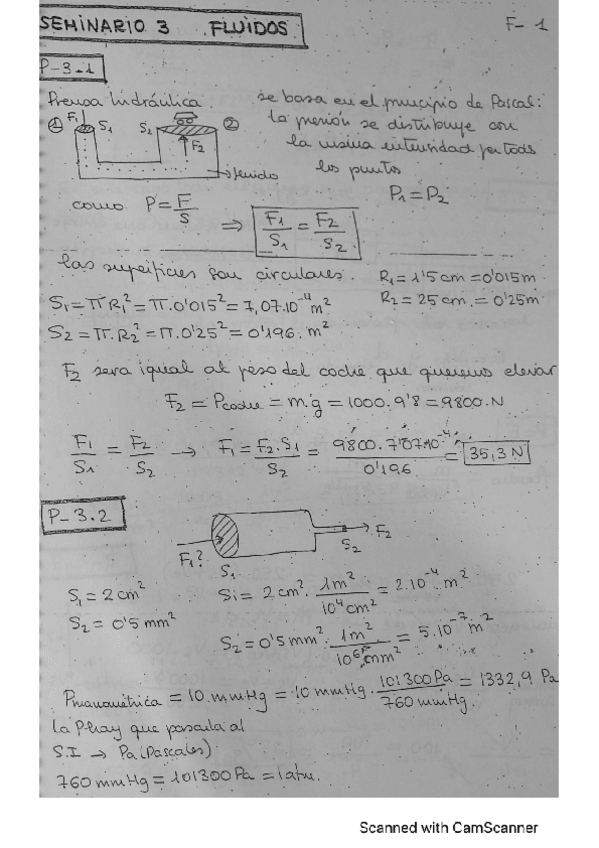 SEMINARIO 3 FLUIDOS
F-1
P-3.1
Prensa hidráulica.
se basa en el principio de Pascal:
la presión se distribuye con
la misma intensidad por todos
los puntos
① F1 S1 S2 ② F2
fluido
P1=P2
como P=F/S ⇒ F1/S1 = F2/S2
las superficies son circulares. R1=1'5cm=0'015m
R2=25cm.=0'25m
S1=π R1²=π.0'015²=7,07.10⁻⁴m²
S2=π.R2²=π.0'25²=0'196.m²
F2 sera igual al peso del coche que queremos elevar
F2=Pcoche=m.g=1000.9'8=9800.N
F1/S1 = F2/S2 → F1=F2.S1/S2 = 9800.7'07.10⁻⁴/0'196 = 35,3N
P-3.2
F1? S1 S2 F2
S1=2cm² Si=2cm².1m²/10⁴cm²=2.10⁻⁴m²
S2=0'5mm² S2=0'5mm².1m²/10⁶mm²=5.10⁻⁷m²
Pmanométrica=10.mmHg=10mmHg.101300Pa/760mmHg=1332,9 Pa
la P hay que pasarla al
S.I → Pa(Pascales)
760mmHg=101300Pa=1atm.
Scanned with CamScanner